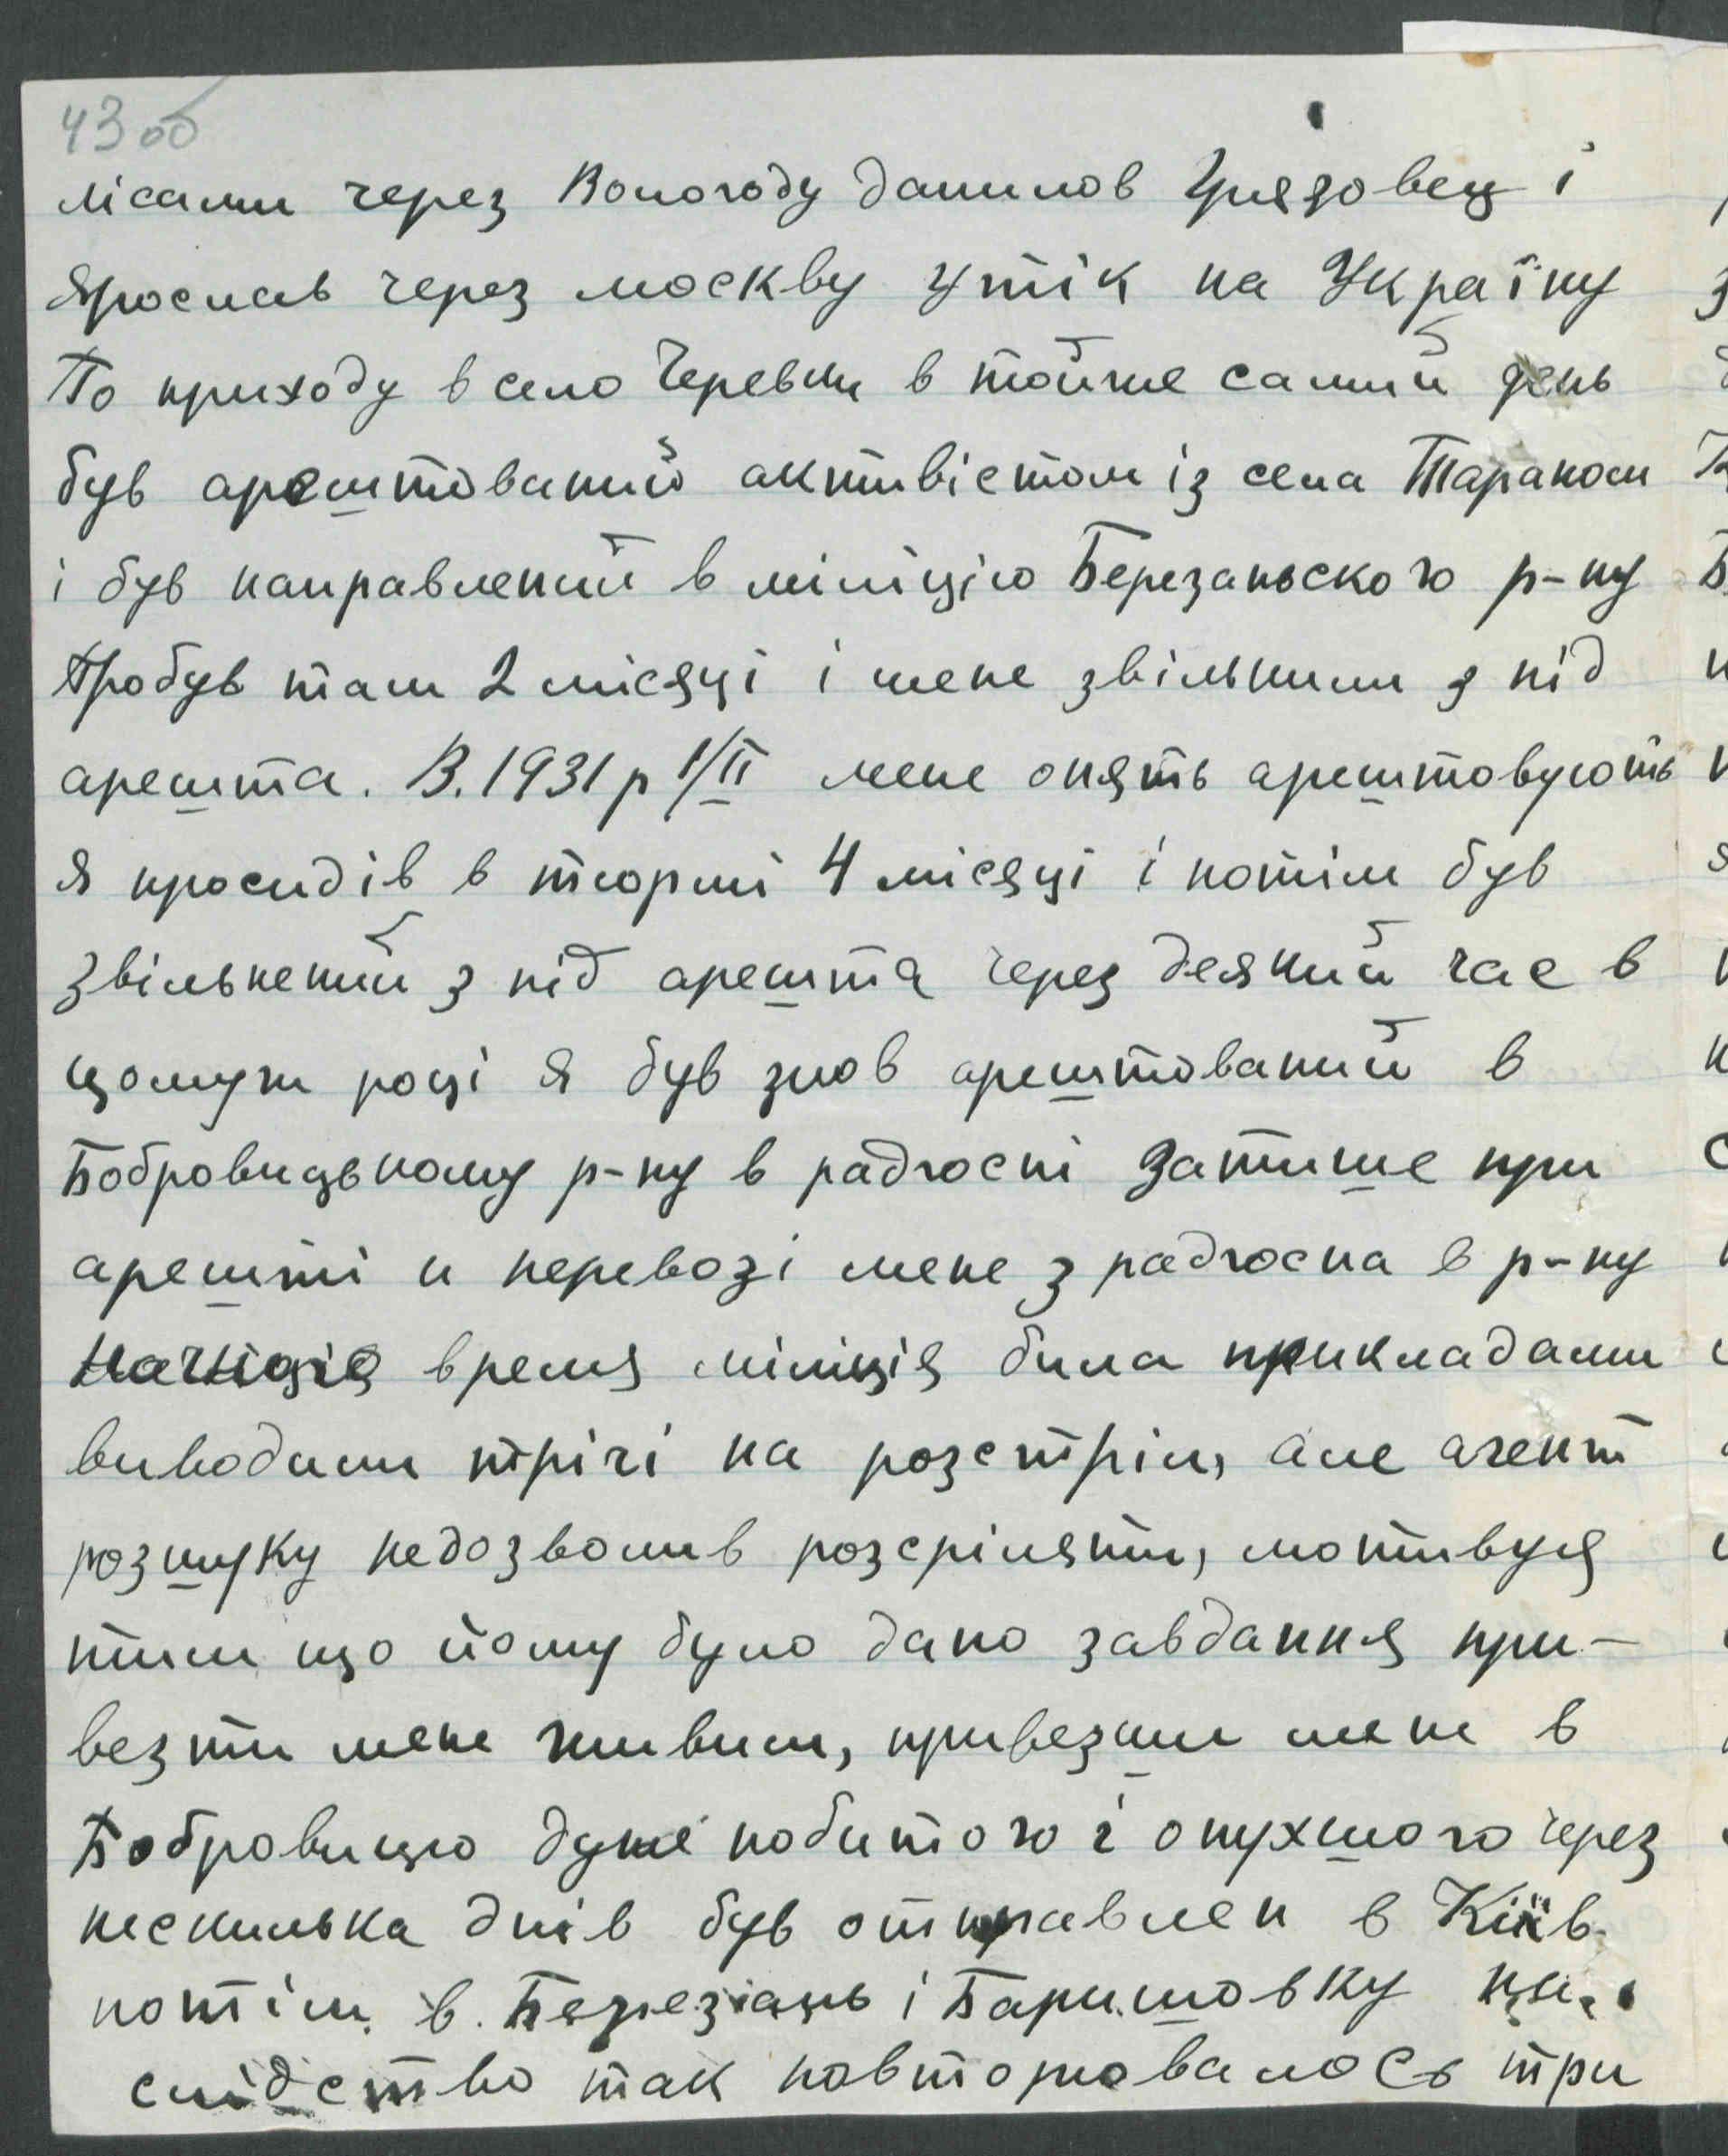 43об
лісами через Вологоду данилов Грязовец і
Ярослав через москву утік на Україну
По приходу в село Черевки в тойже самий день
був арештований активістом із села Тараном
і був направлений в міліцію Березаньского р-ну
Пробув там 2 місяці і мене звільнили з під
арешта. В.1931 р 1/II мене опять арештовують
я просидів в тюрмі 4 місяці і потім був
звільнений з під арешта через деякий час в
цомуж році я був знов арештований в
Бобровицькому р-ну в радгоспі Затише при
арешті и перевозі мене з радгоспа в р-ну
время міліція била прикладами
виводили трічі на розстріл, але агент
розшуку недозволив розсріляти, мотивуя
тим що йому було дано завдання при-
везти мене живим, привезши мене в
Бобровицю дуже побитого і опухшого через
нескилька днів був отправлен в Київ
потім в. Березань і Баришовку на
слідство так повторювалось три